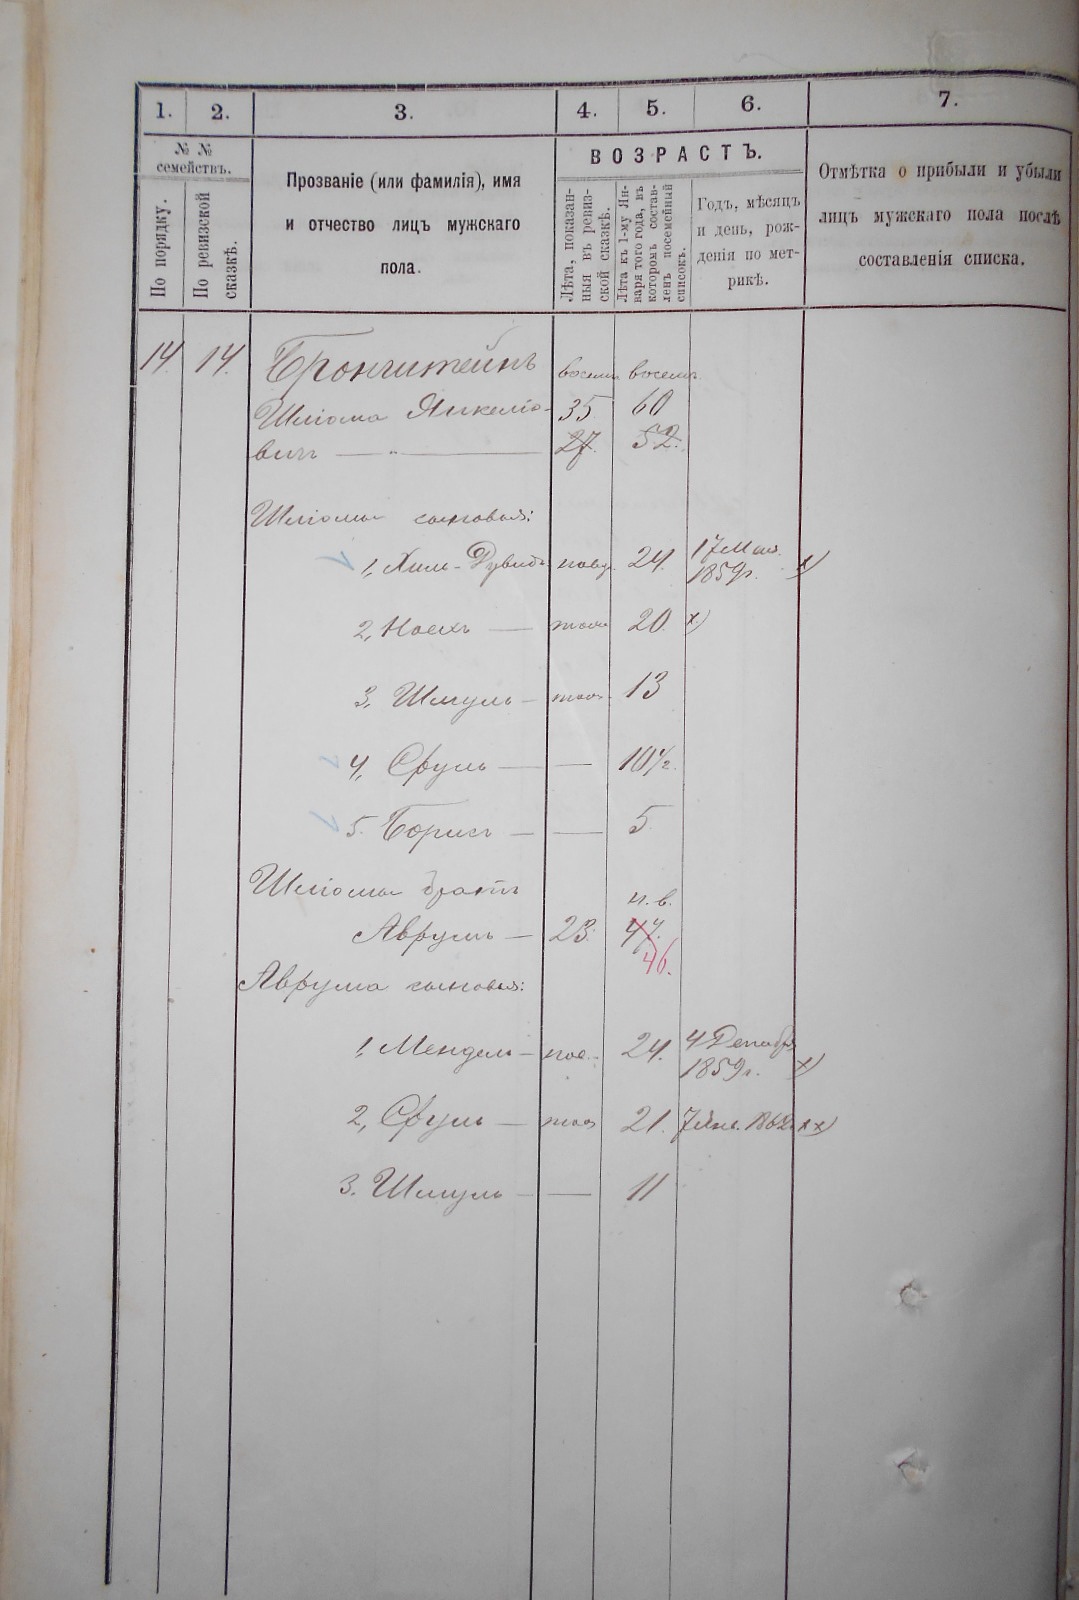 1. 2. 3. 4. 5. 6. 7.
№ №
семействъ.
По порядку.
По ревизской
сказкѣ.
Прозваніе (или фамилія), имя
и отчество лицъ мужскаго
пола.
ВОЗРАСТЪ.
Лѣта, показан-
ныя въ ревиз-
ской сказкѣ.
Лѣта къ 1-му Ян-
варя того года, въ
которомъ состав-
ленъ посемейный
списокъ.
Годъ, мѣсяцъ
и день, рож-
денія по мет-
рикѣ.
Отмѣтка о прибыли и убыли
лицъ мужскаго пола послѣ
составленія списка.
14 14. Бронштейнъ
Шліома Янкеліо- 35 60
вичъ — „ — 27. 52.
Шліомы сыновья:
1, Хаим-Дувидъ 24. 17 Мая
1859г. х)
2, Ноехъ — 20. х)
3, Шмуль — 13
4, Сруль — — 10½.
5. Борисъ — — 5
Шліомы братъ н. в.
Аврумъ — 23. 47.
46.
Аврума сыновья:
1, Мендель — 24. 4 Декабр
1859г. х)
2, Сруль — 21. 7 Янв. 1862 хх)
3. Шмуль — — 11